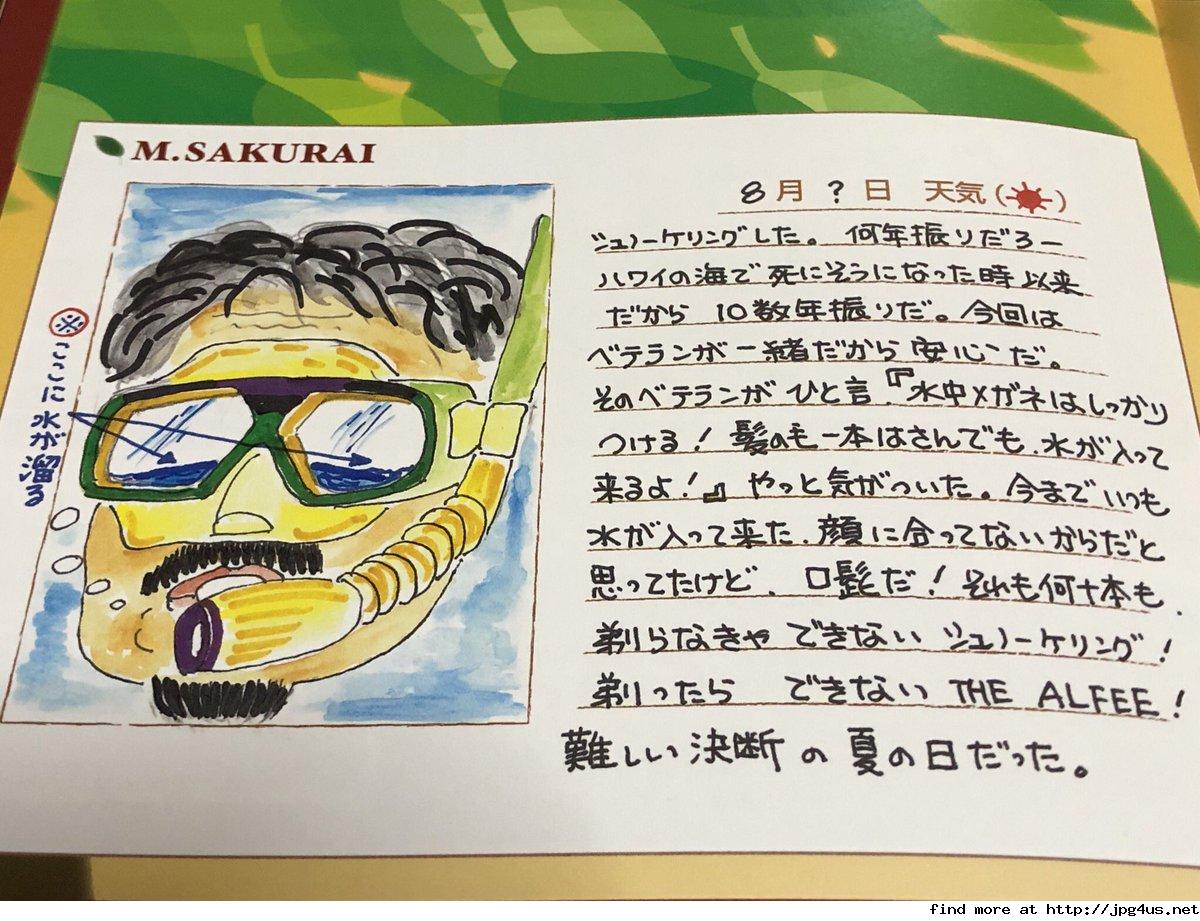 M.SAKURAI
8月 ?日 天気( )
シュノーケリングした。 何年振りだろー
ハワイの海で死にそうになった時以来
だから 10数年振りだ。今回は
ベテランが一緒だから安心だ。
そのベテランが ひと言.『水中メガネはしっかり
つける! 髪の毛一本はさんでも.水が入って
来るよ!』 やっと気がついた。今までいつも
水が入って来た.顔に合ってないからだと
思ってたけど. 口髭だ! それも何十本も.
剃らなきゃ できない シュノーケリング!
剃ったら できない THE ALFEE!
難しい決断の夏の日だった。
※ここに水が溜る
find more at http://jpg4us.net